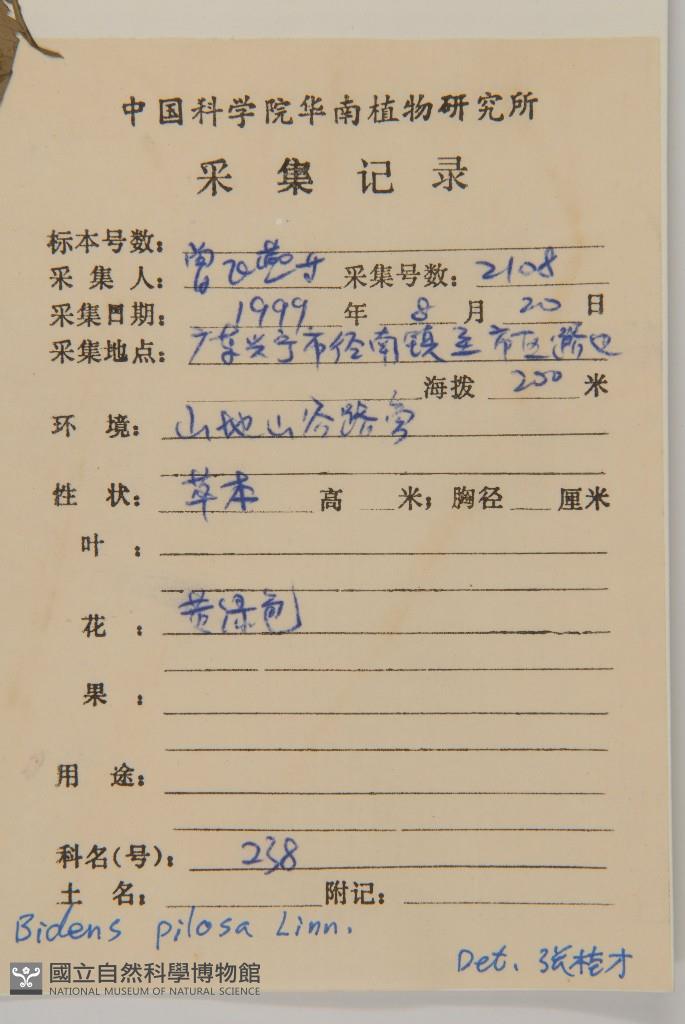 中国科学院华南植物研究所
采集记录
标本号数：
采集人：曾飞燕 采集号数：2108
采集日期：1999年8月20日
采集地点：广东兴宁市径南镇至市区路边
海拨 200 米
环境：山地山谷路旁
性状：草本 高 米；胸径 厘米
叶：
花：黄绿色
果：
用途：
科名(号)：238
土名： 附记：
Bidens pilosa Linn.
Det. 张桂才
國立自然科學博物館
NATIONAL MUSEUM OF NATURAL SCIENCE